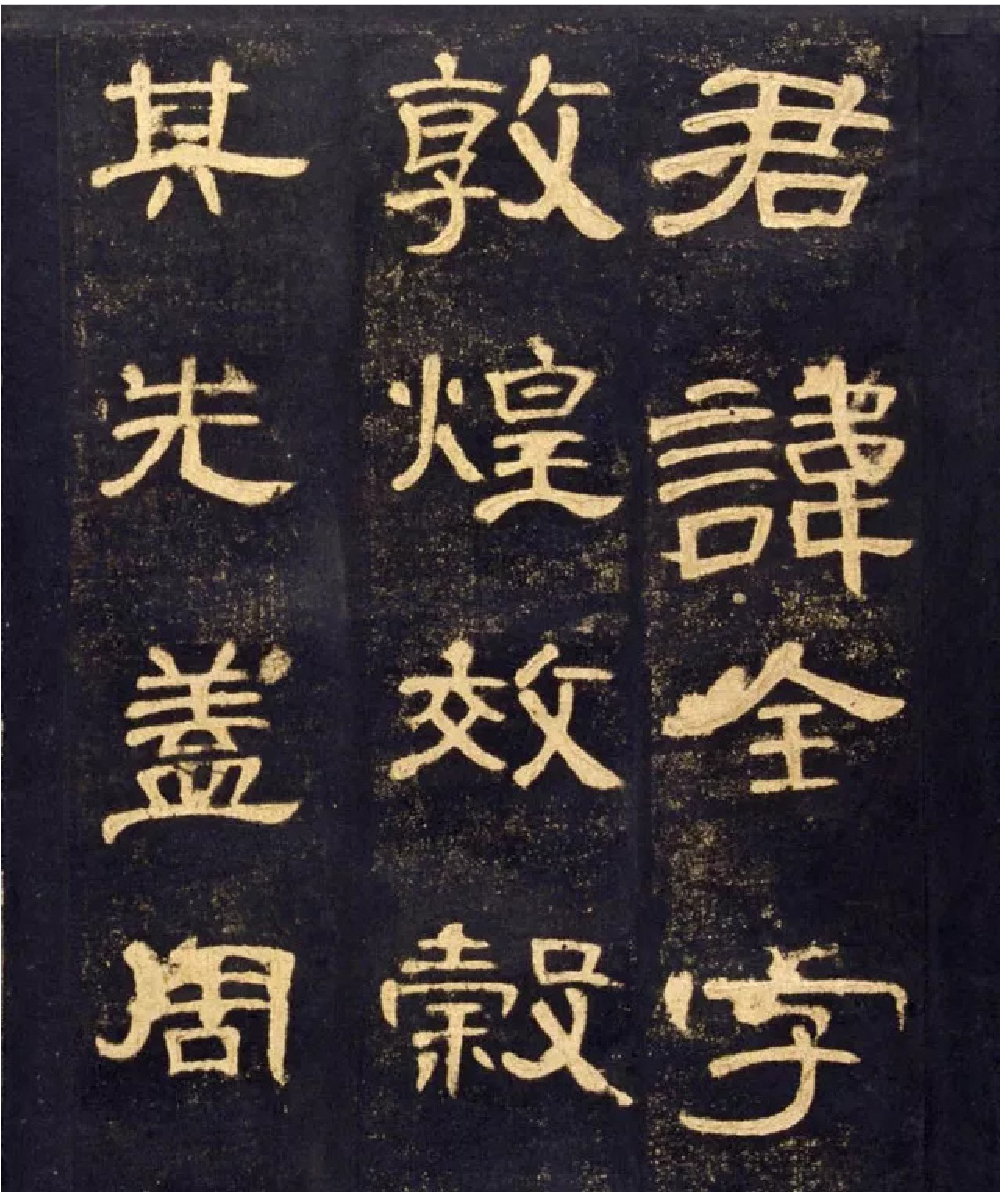 君諱全字
敦煌效穀
其先蓋周